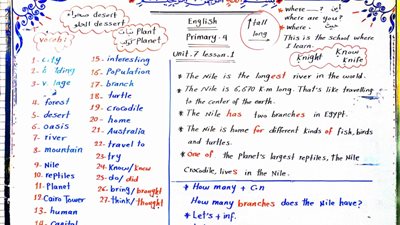 desert صحراء
dessert
Plant نبات
Planet كوكب
English
Primary. 4
Unit. 7 lesson. 1
tall
long
where
where are you?
where
This is the school where
I learn.
Know
Knight
Knife
Vocab
1- c ty
2- b lding
3- v lage
4. forest
5. desert
6. oasis
7- river
8- mountain
9- Nile
10. reptiles
11. Planet
12. Cairo Tower
13- human
14- Capital
15. interesting
16. Population
17. branch
18. turtle
19. crocodile
20. home
21. Australia
22. travel to
23. try
24. Know/Knew
25. do/did
26. bring/brought
27. think/thought
* The Nile is the longest river in the world.
* The Nile is 6,670 K.m long. That's like travelling
to the center of the earth.
* The Nile has two branches in EGYPT.
* The Nile is home for different kinds of fish, birds
and turtles.
* one of the Planet's largest reptiles, The Nile
Crocodile, lives in the Nile.
* How many +
How many branches does the Nile have?
* Let's + inf.